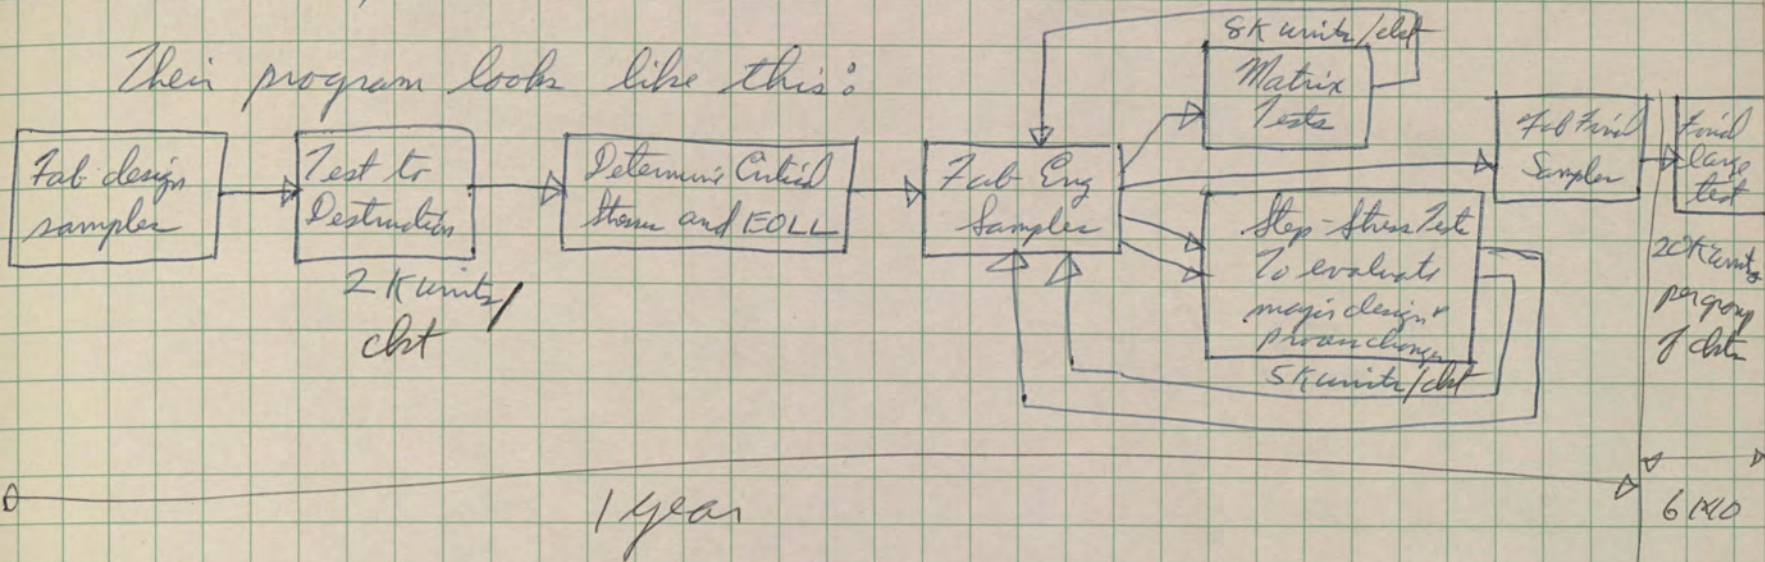 Their program looks like this:
Fab design
samples
Test to
Destruction
2K units/
ckt
Determine Critical
Stresses and EOLL
Fab Eng
Samples
8K units/ckt
Matrix
Tests
Step-Stress Tests
To evaluate
major design &
process changes
5K units/ckt
Fab Final
Samples
Final
large
test
20K units
per group
of ckts
1 year
6 MO